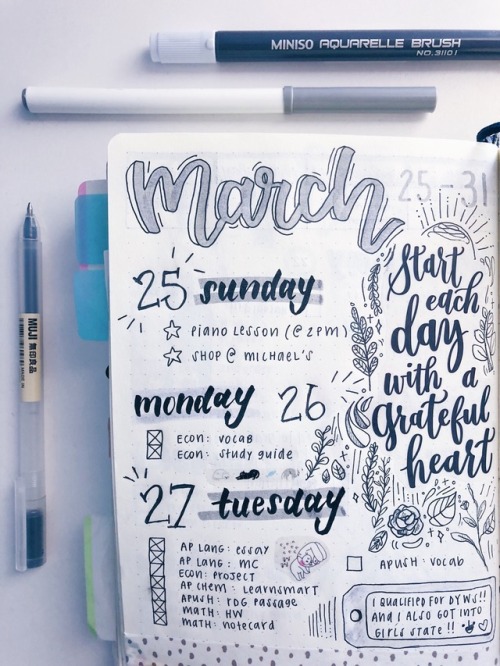 MINISO AQUARELLE BRUSH
NO.31101
MUJI 無印良品
March 25-31
25 sunday
PIANO LESSON (@ 2PM)
SHOP @ MICHAEL'S
monday 26
ECON: VOCAB
ECON: STUDY GUIDE
27 tuesday
AP LANG: ESSAY
AP LANG: MC
ECON: PROJECT
AP CHEM: LEARNSMART
APUSH: RDG PASSAGE
MATH: HW
MATH: NOTECARD
Start
each
day
with a
grateful
heart
APUSH: VOCAB
I QUALIFIED FOR DYWS!!
AND I ALSO GOT INTO
GIRLS STATE!!